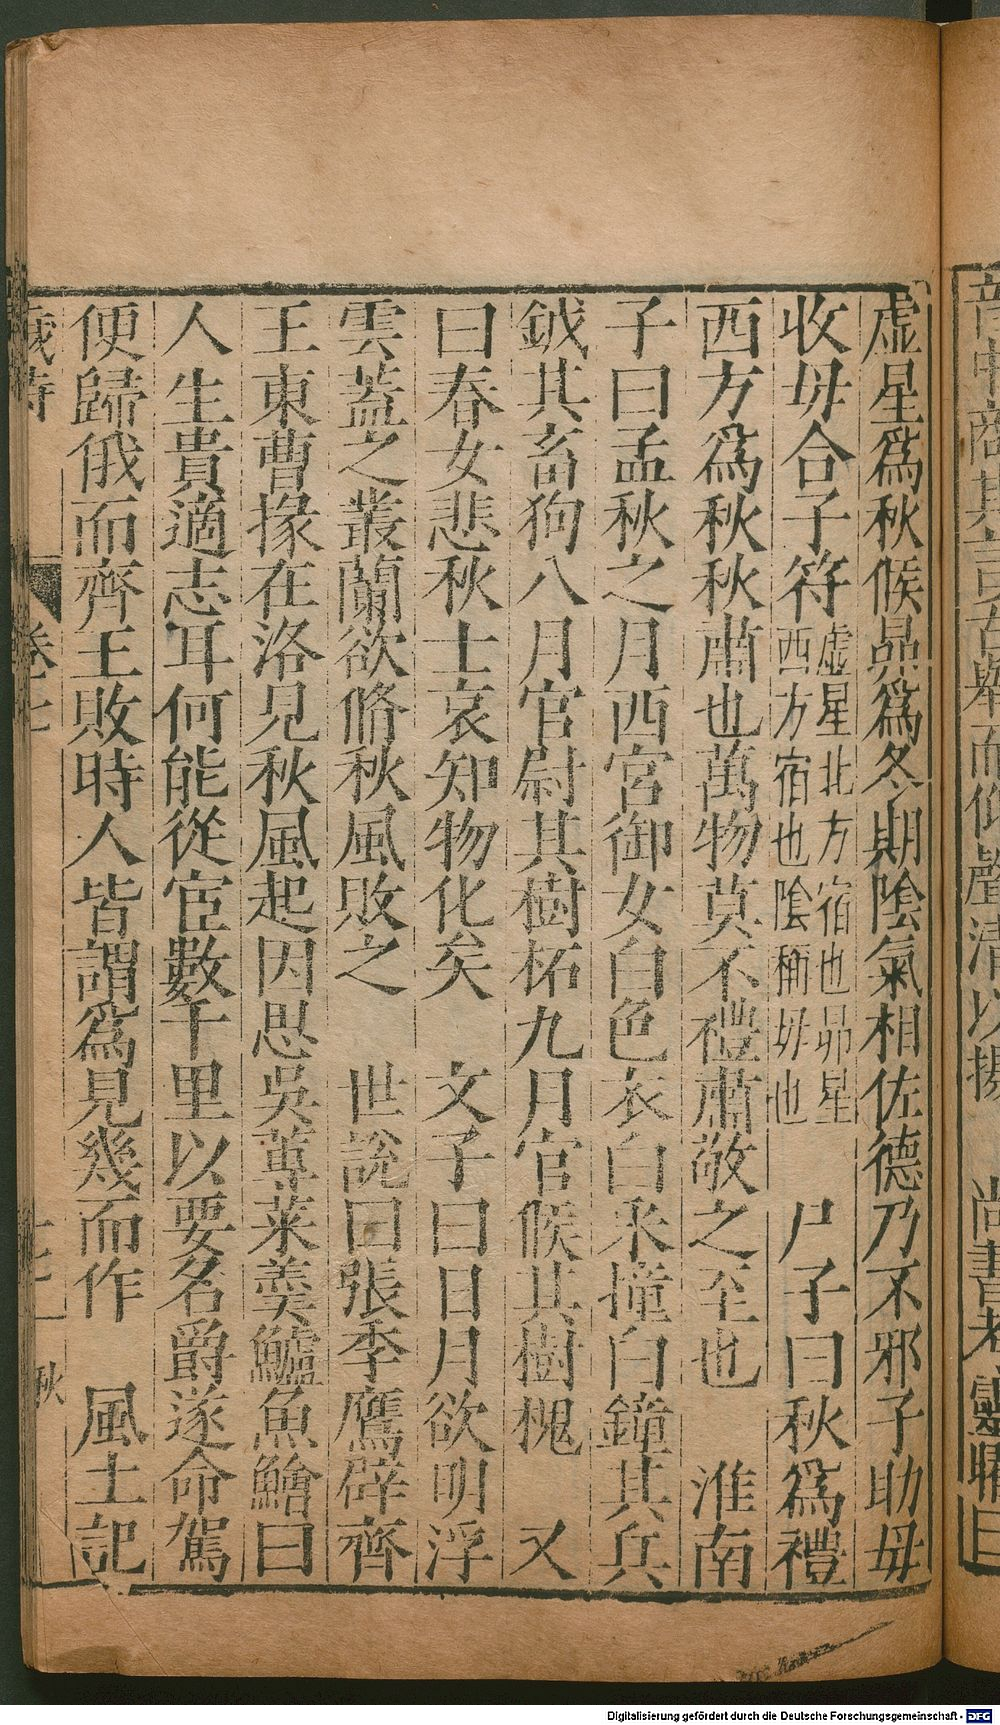 虚星爲秋候昴爲冬期陰氣相佐德乃不邪子助毋
收毋合子符虚星北方宿也昴星西方宿也陰稱毋也　尸子曰秋爲禮
西方爲秋秋肅也萬物莫不禮肅敬之至也　淮南
子曰孟秋之月西宮御女白色衣白采撞白鐘其兵
鉞其畜狗八月官尉其樹柘九月官候其樹槐　又
曰春女悲秋士哀知物化矣　文子曰日月欲明浮
雲蓋之叢蘭欲脩秋風敗之　世說曰張季鷹辟齊
王東曹掾在洛見秋風起因思吳蓴菜羮鱸魚鱠曰
人生貴適志耳何能從宦數千里以要名爵遂命駕
便歸俄而齊王敗時人皆謂爲見幾而作　風土記
歲時　卷　秋
尚書考靈曜曰
Digitalisierung gefördert durch die Deutsche Forschungsgemeinschaft - DFG